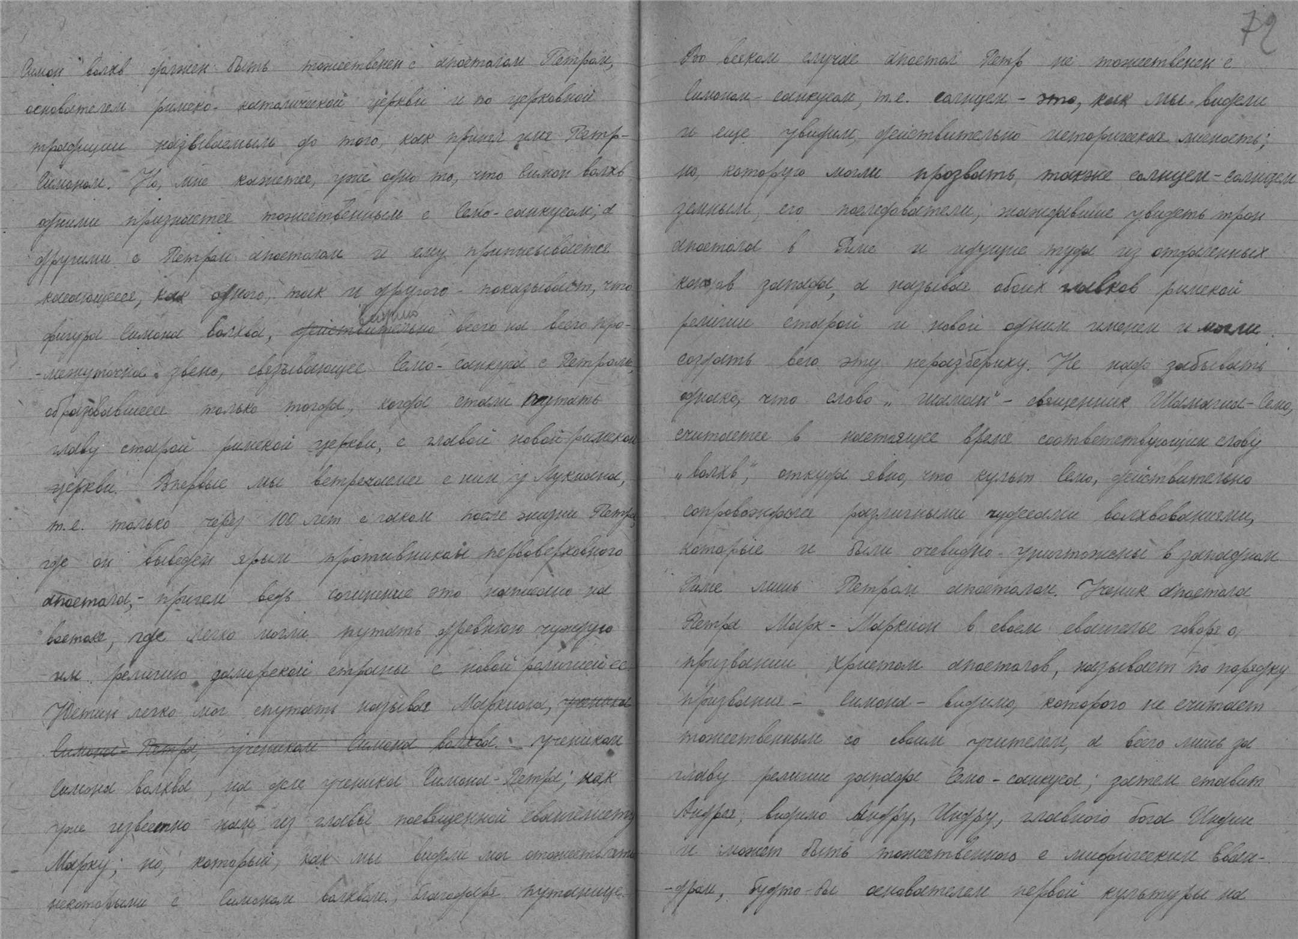 Симон волхв должен быть тожественен с апостолом Петром,
основателем римско-католической церкви и по церковной
традиции называемым до того, как принял имя Петр-
Симоном. Но, мне кажется, уже одно то, что Симон волхв
одними признается тожественным с Семо-санкусом, а
другими с Петром апостолом и ему приписывается
касающееся, как одного, так и другого - показывает, что
видимо
фигура Симона волхва, действительно всего на всего про-
-межуточное звено, связывающее Семо-санкуса с Петром,
образовавшееся только тогда, когда стали путать
главу старой римской церкви, с главой новой римской
церкви. Впервые мы встречаемся с ним у Лукиана,
т.е. только через 100 лет с гаком после жизни Петра,
где он выведен ярым противником первоверховного
апостола, - причем ведь сочинение это написано на
востоке, где легко могли путать древнюю чуждую
им религию заморской страны с новой религией ее
Устин легко мог спутать называя Маркиона, ученика
Симона-Петра, учеником Симона волхва. учеником
Симона волхва, на деле ученика Симона-Петра; как
уже известно нам из главы посвященной евангелисту
Марку; но, который, как мы видели мог отожествляться
некоторыми с Симоном волхвом, благодаря путанице.
72
Во всяком случае апостол Петр не тожественен с
Симоном-санкусом, т.е. солнцем - это, как мы видели
и еще увидим, действительно историческая личность;
но, которую могли прозвать, также солнцем-солнцем
земным, его последователи, жаждавшие увидеть трон
апостола в Риме и идущие туда из отдаленных
концов запада, а называя обоих главков римской
религии старой и новой одним именем и могли
создать всю эту неразбериху. Не надо забывать
однако, что слово „шаман" - священник Шамаша-Семо,
считается в настоящее время соответствующим слову
„волхв", откуда явно, что культ Семо, действительно
сопровождался различными чудесами волхвованиями,
которые и были очевидно-уничтожены в западном
Риме лишь Петром апостолом. Ученик апостола
Петра Марк-Маркион в своем евангелье говоря о
призвании Христом апостолов, называет по порядку
призвания - Симона - видимо, которого не считает
тожественным со своим учителем, а всего лишь за
главу религии запада Семо-санкуса; затем ставит
Андрея, видимо Андру, Индру, главного бога Индии
и может быть тожественного с мифическим Еван-
-дром, будто-бы основателем первой культуры на